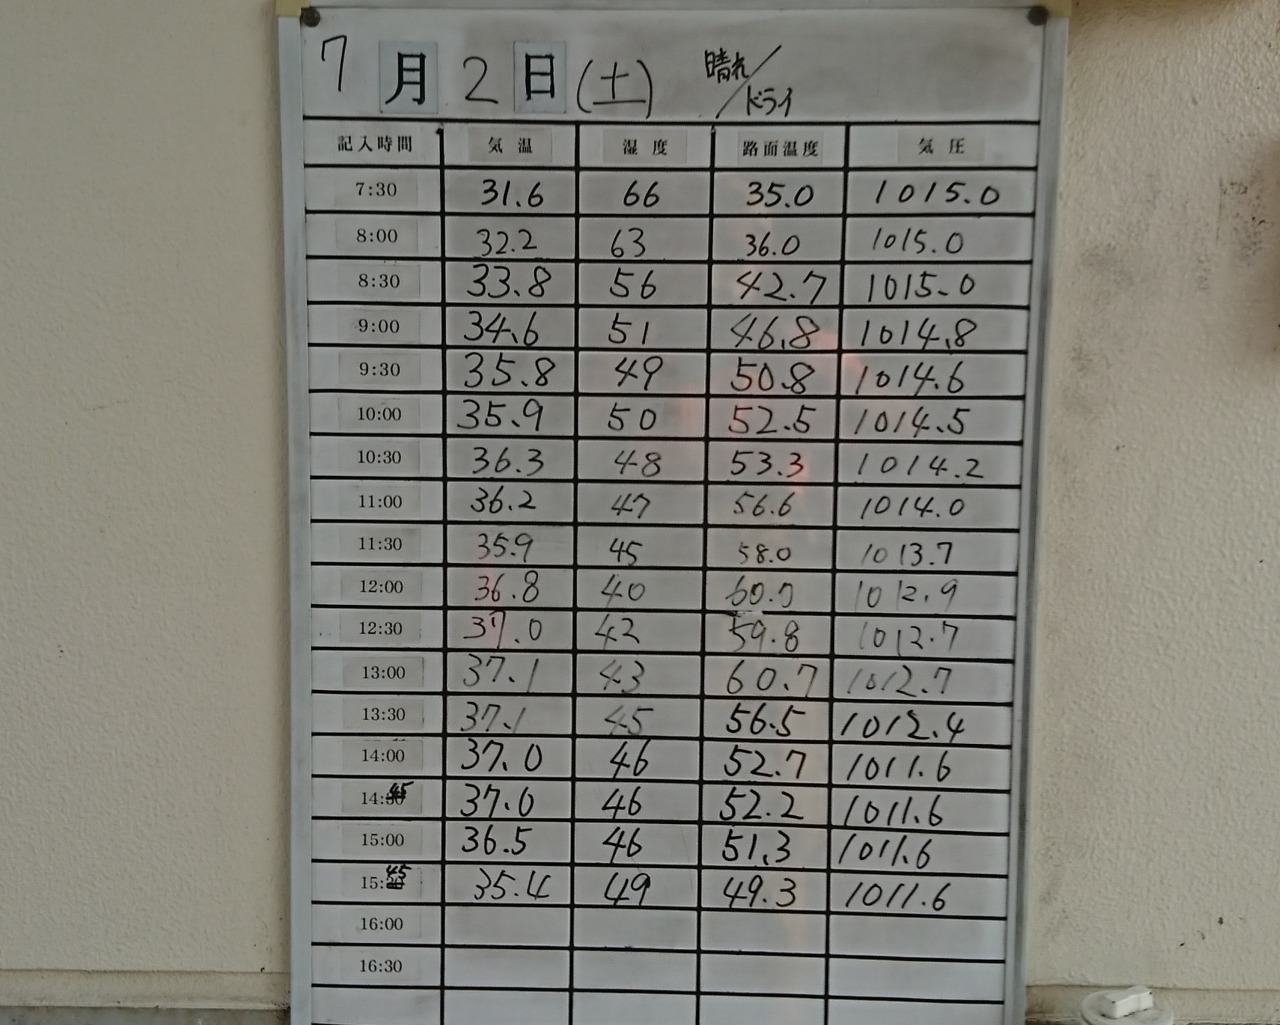 7月2日(土) 晴れ/ドライ
記入時間 気温 湿度 路面温度 気圧
7:30 31.6 66 35.0 1015.0
8:00 32.2 63 36.0 1015.0
8:30 33.8 56 42.7 1015.0
9:00 34.6 51 46.8 1014.8
9:30 35.8 49 50.8 1014.6
10:00 35.9 50 52.5 1014.5
10:30 36.3 48 53.3 1014.2
11:00 36.2 47 56.6 1014.0
11:30 35.9 45 58.0 1013.7
12:00 36.8 40 1012.9
12:30 37.0 42 59.8 1012.7
13:00 37.1 43 60.7 1012.7
13:30 37.1 45 56.5 1012.4
14:00 37.0 46 52.7 1011.6
14:45 37.0 46 52.2 1011.6
15:00 36.5 46 51.3 1011.6
15:45 35.4 49 49.3 1011.6
16:00
16:30